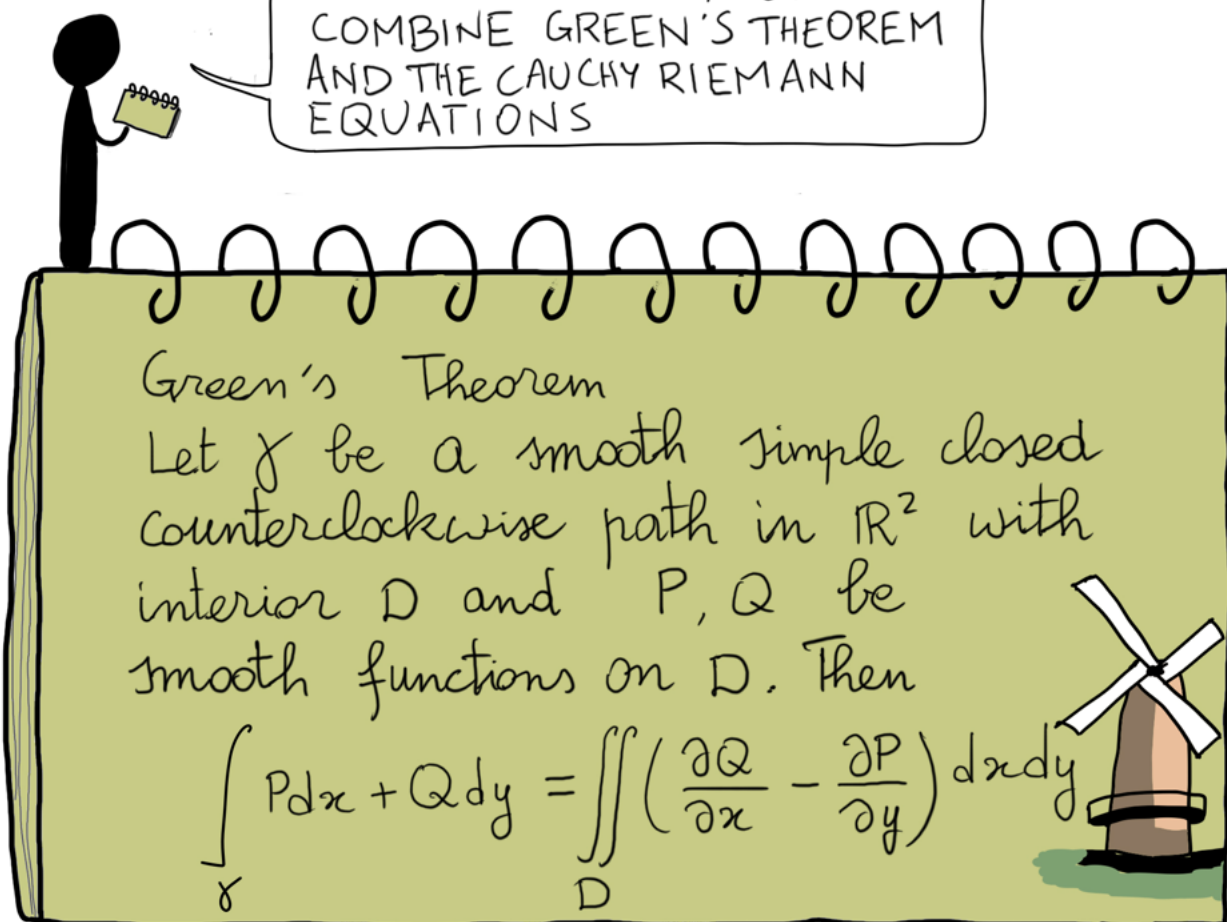 COMBINE GREEN'S THEOREM
AND THE CAUCHY RIEMANN
EQUATIONS
Green's Theorem
Let γ be a smooth simple closed
counterclockwise path in ℝ² with
interior D and P, Q be
smooth functions on D. Then
∫_γ Pdx + Qdy = ∬_D (∂Q/∂x - ∂P/∂y) dxdy